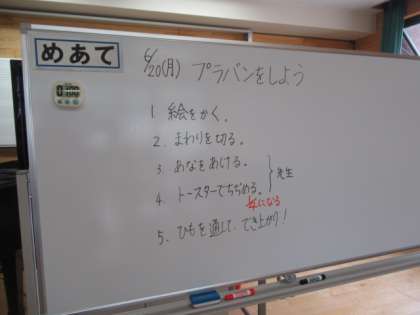 めあて
6/20(月) プラバンをしよう
1. 絵をかく。
2. まわりを切る。
3. あなをあける。
4. トースターでちぢめる。
先生
1/4になる
5. ひもを通して、でき上がり!